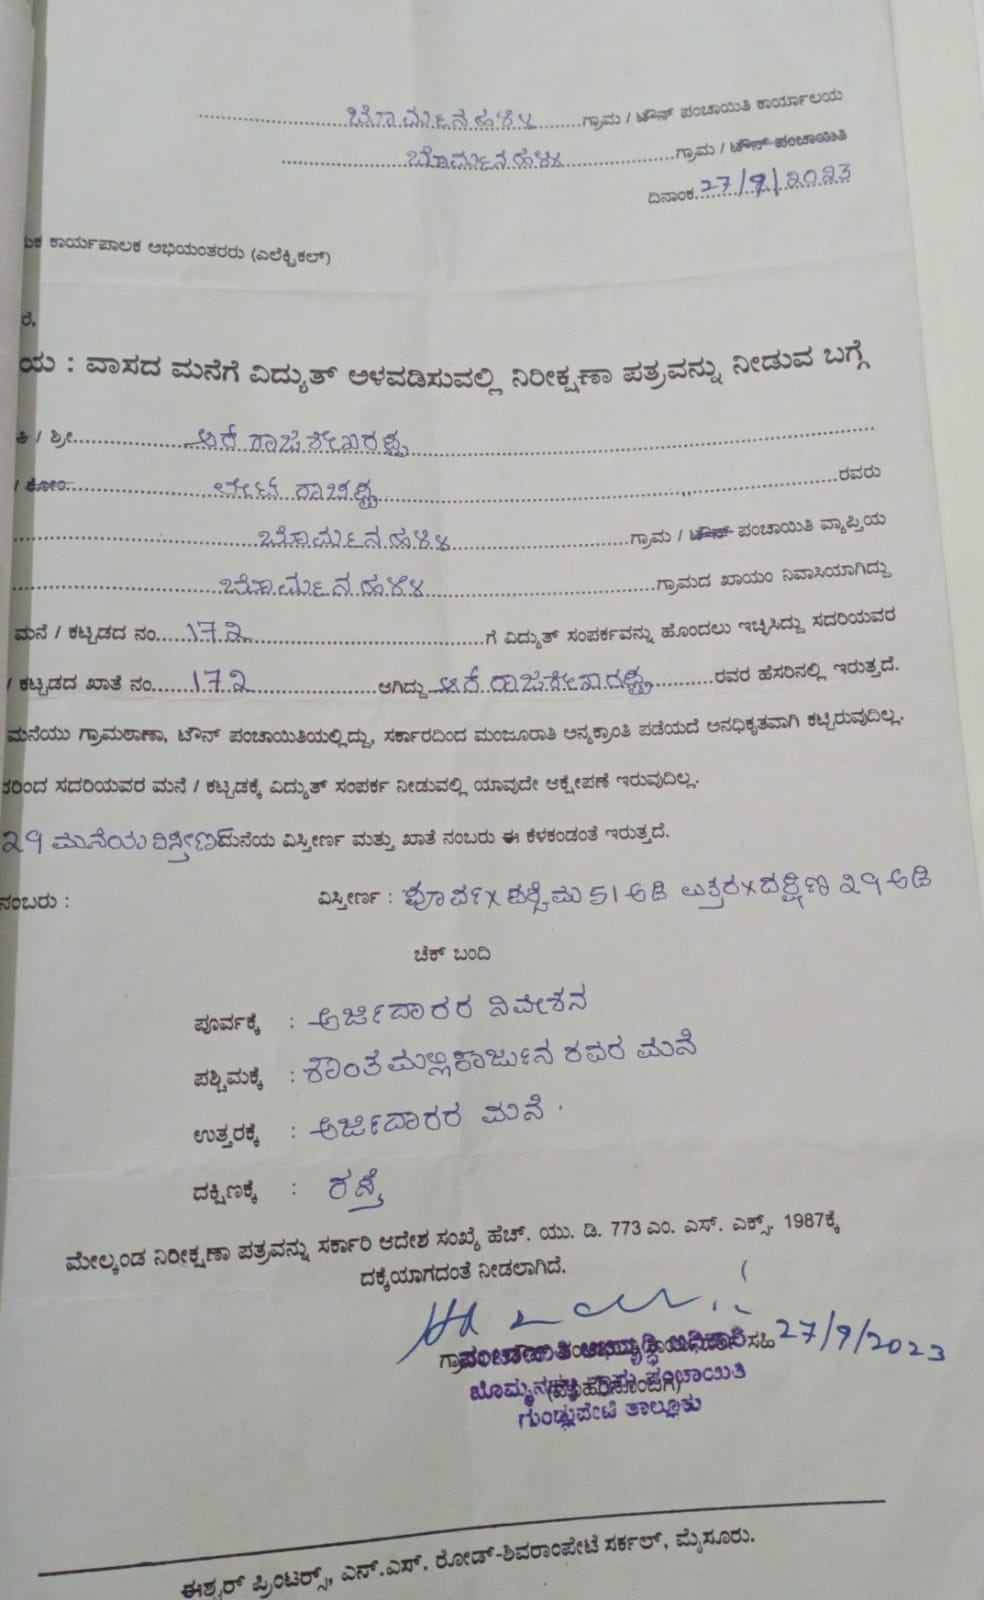 ಬೊಮ್ಮನಹಳ್ಳಿ ಗ್ರಾಮ / ಟೌನ್ ಪಂಚಾಯಿತಿ ಕಾರ್ಯಾಲಯ
ಬೊಮ್ಮನಹಳ್ಳಿ ಗ್ರಾಮ / ಟೌನ್ ಪಂಚಾಯಿತಿ
ದಿನಾಂಕ 27/9/೨೦೨3
ಕಾರ್ಯಪಾಲಕ ಅಭಿಯಂತರರು (ಎಲೆಕ್ಟ್ರಿಕಲ್)
ರೆ,
ಯ : ವಾಸದ ಮನೆಗೆ ವಿದ್ಯುತ್ ಅಳವಡಿಸುವಲ್ಲಿ ನಿರೀಕ್ಷಣಾ ಪತ್ರವನ್ನು ನೀಡುವ ಬಗ್ಗೆ
/ ಶ್ರೀ ಆರ್ ರಾಜಶೇಖರಪ್ಪ
/ ಕೋಂ ಲೇಟ್ ರಾಚಪ್ಪ ರವರು
ಬೊಮ್ಮನಹಳ್ಳಿ ಗ್ರಾಮ / ಟೌನ್ ಪಂಚಾಯಿತಿ ವ್ಯಾಪ್ತಿಯ
ಬೊಮ್ಮನಹಳ್ಳಿ ಗ್ರಾಮದ ಖಾಯಂ ನಿವಾಸಿಯಾಗಿದ್ದು
ಮನೆ / ಕಟ್ಟಡದ ನಂ. 17೨ ಗೆ ವಿದ್ಯುತ್ ಸಂಪರ್ಕವನ್ನು ಹೊಂದಲು ಇಚ್ಛಿಸಿದ್ದು ಸದರಿಯವರ
/ ಕಟ್ಟಡದ ಖಾತೆ ನಂ. 17೨ ಆಗಿದ್ದು ಆರ್ ರಾಜಶೇಖರಪ್ಪ ರವರ ಹೆಸರಿನಲ್ಲಿ ಇರುತ್ತದೆ.
ಮನೆಯು ಗ್ರಾಮಠಾಣಾ, ಟೌನ್ ಪಂಚಾಯಿತಿಯಲ್ಲಿದ್ದು, ಸರ್ಕಾರದಿಂದ ಮಂಜೂರಾತಿ ಅನ್ಯಕ್ರಾಂತಿ ಪಡೆಯದೆ ಅನಧಿಕೃತವಾಗಿ ಕಟ್ಟಿರುವುದಿಲ್ಲ.
ಸದರಿಯವರ ಮನೆ / ಕಟ್ಟಡಕ್ಕೆ ವಿದ್ಯುತ್ ಸಂಪರ್ಕ ನೀಡುವಲ್ಲಿ ಯಾವುದೇ ಆಕ್ಷೇಪಣೆ ಇರುವುದಿಲ್ಲ.
೨೯ ಮನೆಯ ವಿಸ್ತೀರ್ಣ ಮನೆಯ ವಿಸ್ತೀರ್ಣ ಮತ್ತು ಖಾತೆ ನಂಬರು ಈ ಕೆಳಕಂಡಂತೆ ಇರುತ್ತದೆ.
ನಂಬರು : ವಿಸ್ತೀರ್ಣ : ಪೂರ್ವ x ಪಶ್ಚಿಮ 51 ಅಡಿ ಉತ್ತರ x ದಕ್ಷಿಣ ೨೯ ಅಡಿ
ಚೆಕ್ ಬಂದಿ
ಪೂರ್ವಕ್ಕೆ : ಅರ್ಜಿದಾರರ ನಿವೇಶನ
ಪಶ್ಚಿಮಕ್ಕೆ : ಶಾಂತಮಲ್ಲಿಕಾರ್ಜುನ ರವರ ಮನೆ
ಉತ್ತರಕ್ಕೆ : ಅರ್ಜಿದಾರರ ಮನೆ
ದಕ್ಷಿಣಕ್ಕೆ : ರಸ್ತೆ
ಮೇಲ್ಕಂಡ ನಿರೀಕ್ಷಣಾ ಪತ್ರವನ್ನು ಸರ್ಕಾರಿ ಆದೇಶ ಸಂಖ್ಯೆ ಹೆಚ್. ಯು. ಡಿ. 773 ಎಂ. ಎಸ್. ಎಕ್ಸ್. 1987ಕ್ಕೆ
ದಕ್ಕೆಯಾಗದಂತೆ ನೀಡಲಾಗಿದೆ.
ಪಂಚಾಯಿತಿ ಅಭಿವೃದ್ಧಿ ಅಧಿಕಾರಿ ಸಹಿ 27/9/2023
ಬೊಮ್ಮನಹಳ್ಳಿ ಗ್ರಾಮ ಪಂಚಾಯಿತಿ
ಗುಂಡ್ಲುಪೇಟೆ ತಾಲ್ಲೂಕು
ಈಶ್ವರ್ ಪ್ರಿಂಟರ್ಸ್, ಎನ್.ಎಸ್. ರೋಡ್-ಶಿವರಾಂಪೇಟೆ ಸರ್ಕಲ್, ಮೈಸೂರು.